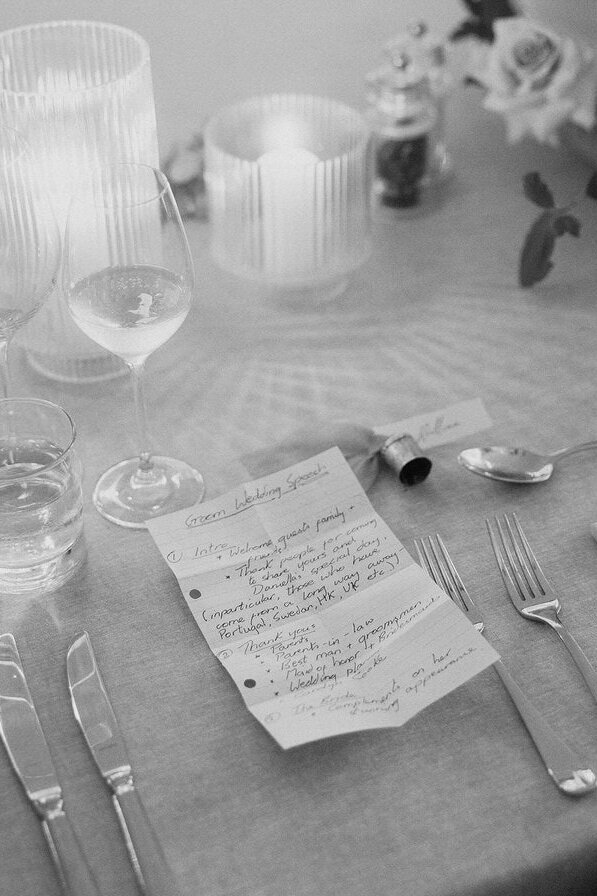 Groom Wedding Speech
① Intro
* Welcome guests family +
friends!
* Thank people for coming
to share yours and
Danielle's special day,
(inparticular, those who have
come from a long way away -
Portugal, Sweden, HK, UK etc!)
② Thank yous
* Parents
* Parents-in-law
* Best man + groomsmen
* Maid of honor + Bridesmaid
* Wedding
③ The Bride
* Compliments on her
stunning appearance